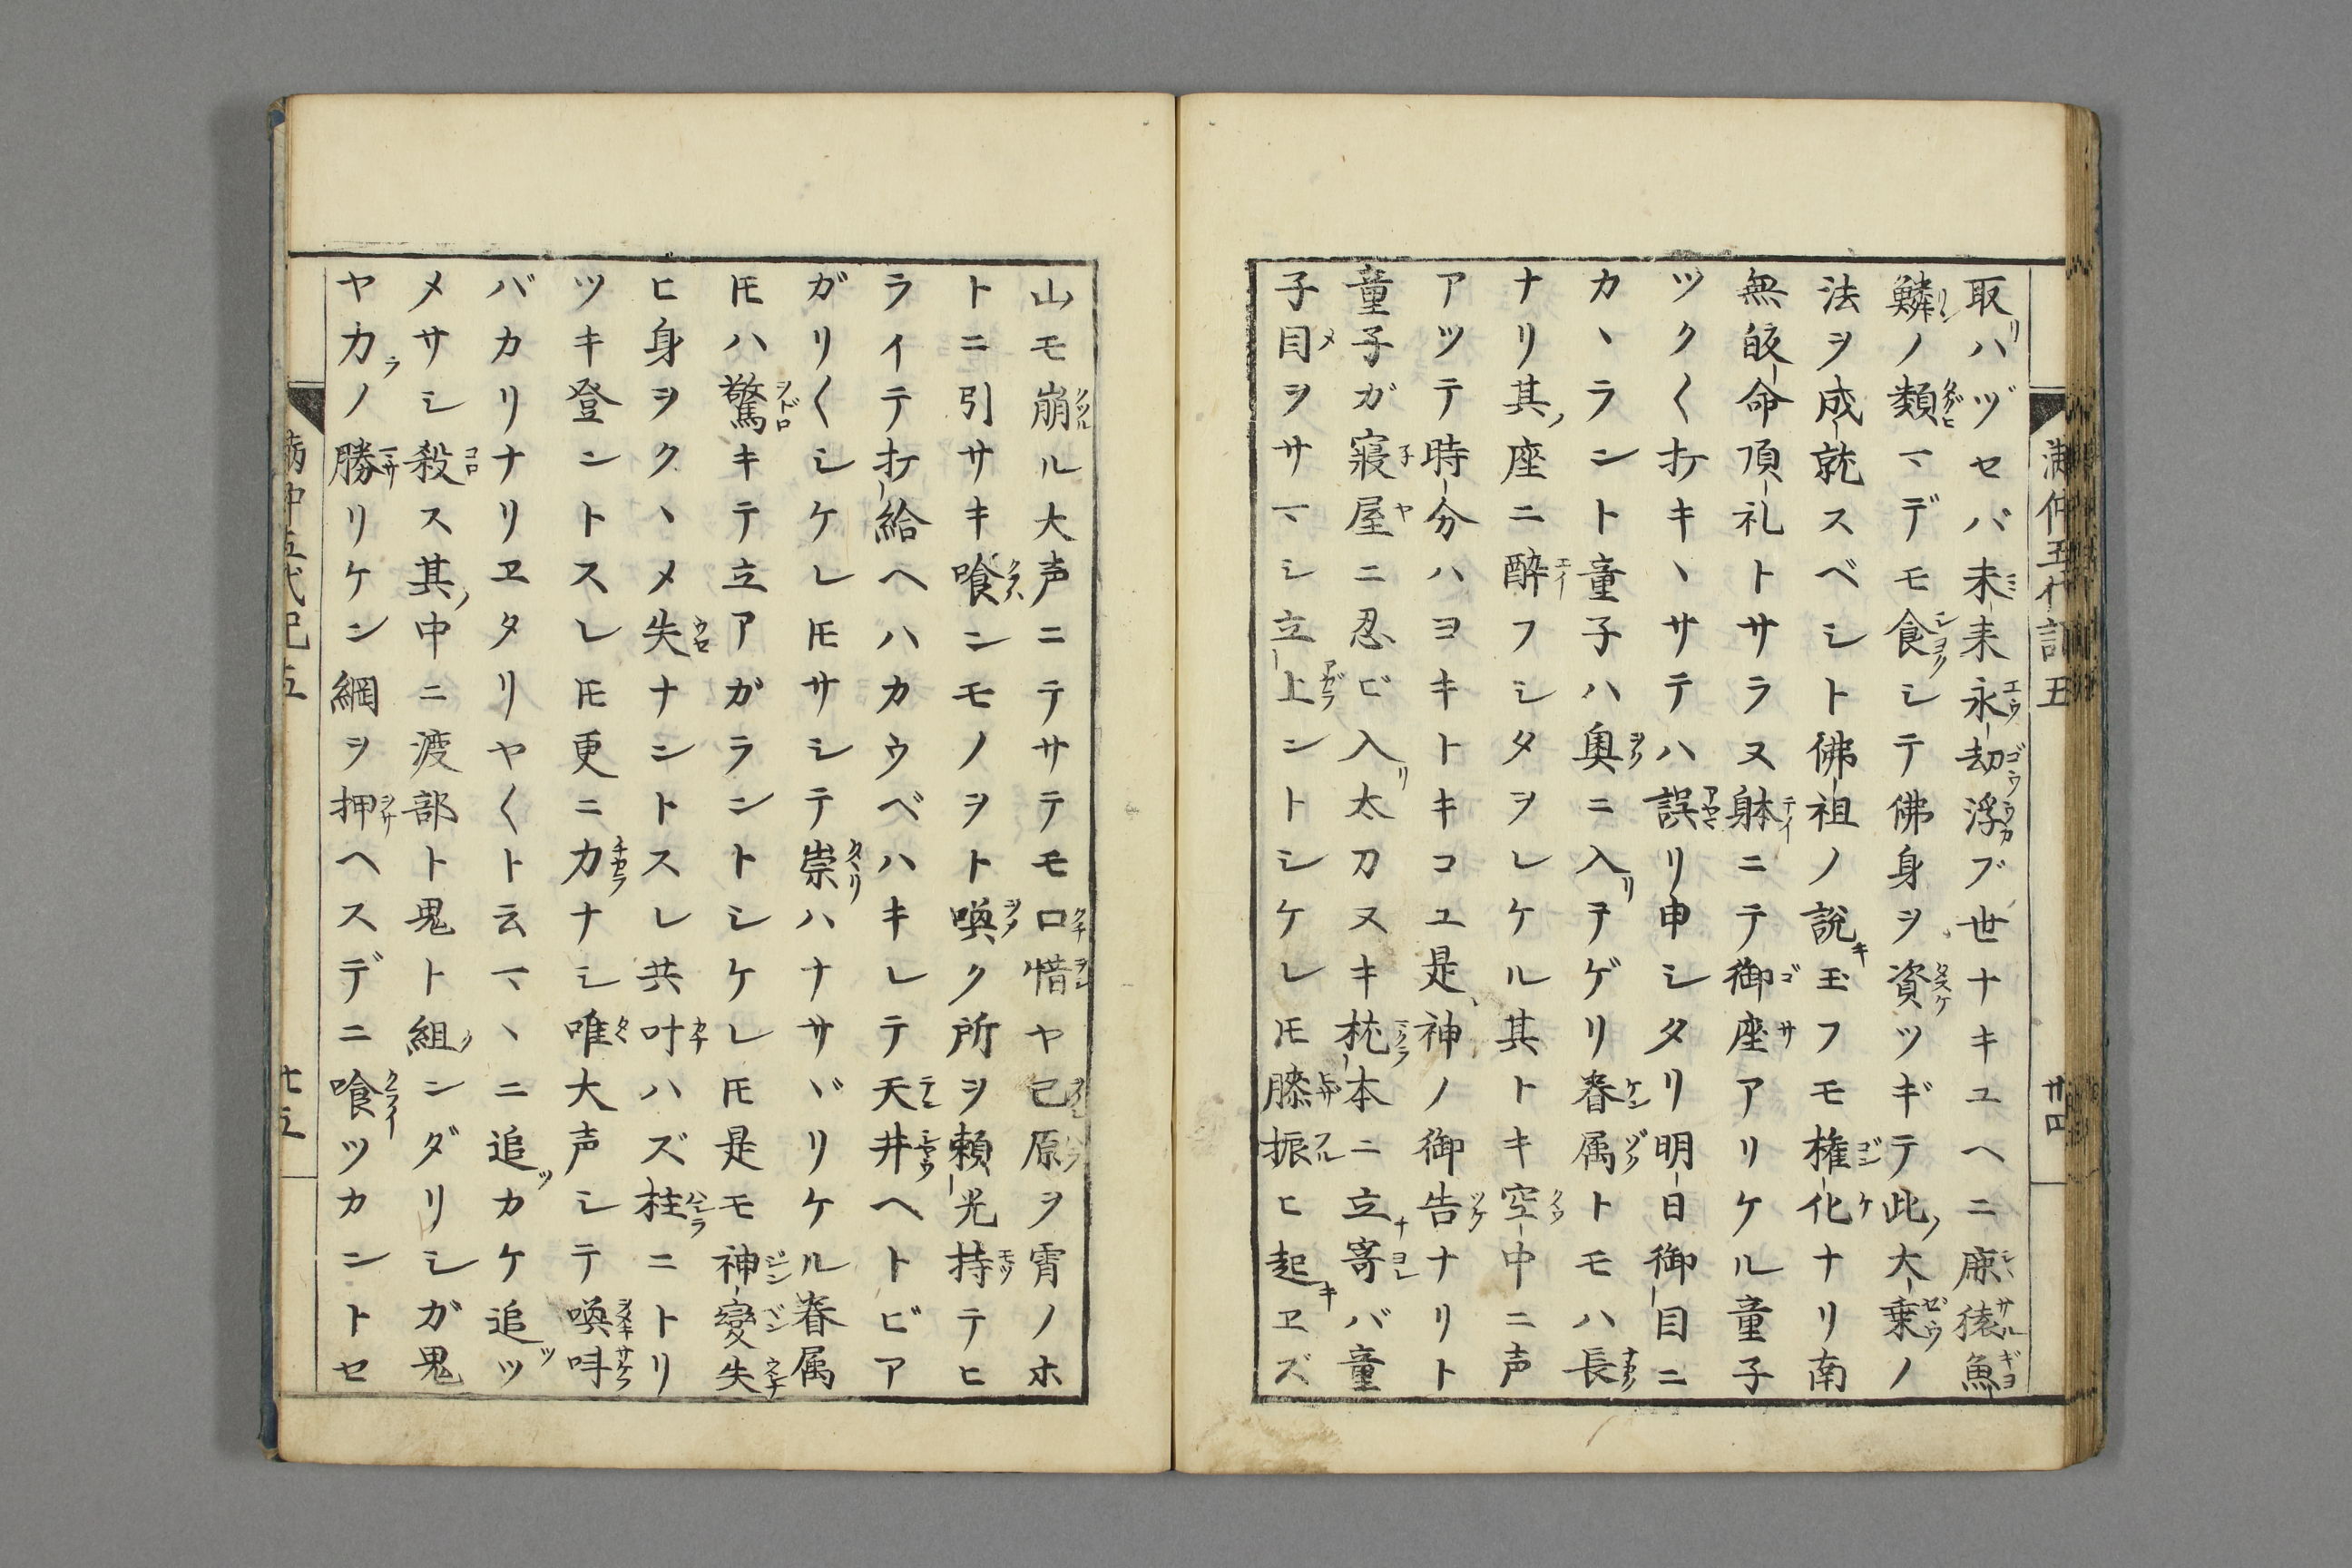 満仲五代記五
廿四
取リハヅセバ未来永劫浮ブ世ナキユヘニ鹿猿魚
鱗ノ類マデモ食シテ佛身ヲ資ツギテ此ノ大乗ノ
法ヲ成就スベシト佛祖ノ説キ玉フモ権化ナリ南
無皈命頂礼トサラヌ躰ニテ御座アリケル童子
ツク〱オキヽサテハ誤リ申シタリ明日御目ニ
カヽラント童子ハ奥ニ入リ玉ゲリ眷属トモハ長
ナリ其ノ座ニ酔フシタヲレケル其トキ空中ニ声
アツテ時分ハヨキトキコユ是神ノ御告ナリト
童子ガ寝屋ニ忍ビ入リ太刀ヌキ枕本ニ立寄バ童
子目ヲサマシ立上ントシケレ𪜈膝振ヒ起キヱズ
山モ崩ル大声ニテサテモ口惜ヤ己原ヲ霄ノホ
トニ引サキ喰ンモノヲト喚ク所ヲ頼光持テヒ
ライテ打給ヘハカウベハキレテ天井ヘトビア
ガリ〱シケレ𪜈サシテ祟ハナサヾリケル眷属
𪜈ハ驚キテ立アガラントシケレ𪜈是モ神變失
ヒ身ヲクヽメ失ナントスレ共叶ハズ柱ニトリ
ツキ登ントスレ𪜈更ニ力ナシ唯大声シテ喚呌
バカリナリヱタリヤ〱ト云マヽニ追ツカケ追ツツ
メサシ殺ス其ノ中ニ渡部ト鬼ト組ンダリシガ鬼
ヤカラノ勝リケン綱ヲ押ヘスデニ喰ツカントセ
満仲五代記五
廿五